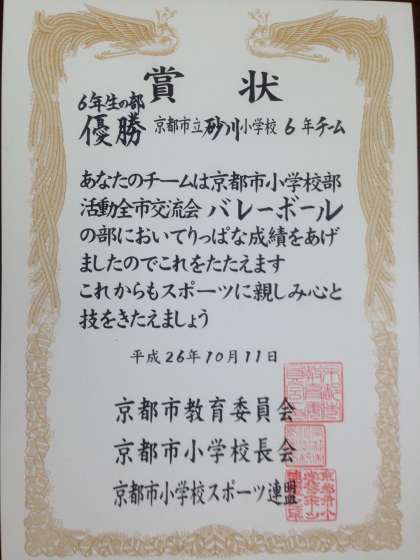 賞状
6年生の部
優勝 京都市立砂川小学校 6年チーム
あなたのチームは京都市小学校部
活動全市交流会 バレーボール
の部においてりっぱな成績をあげ
ましたのでこれをたたえます
これからもスポーツに親しみ心と
技をきたえましょう
平成26年10月11日
京都市教育委員会
京都市小学校長会
京都市小学校スポーツ連盟